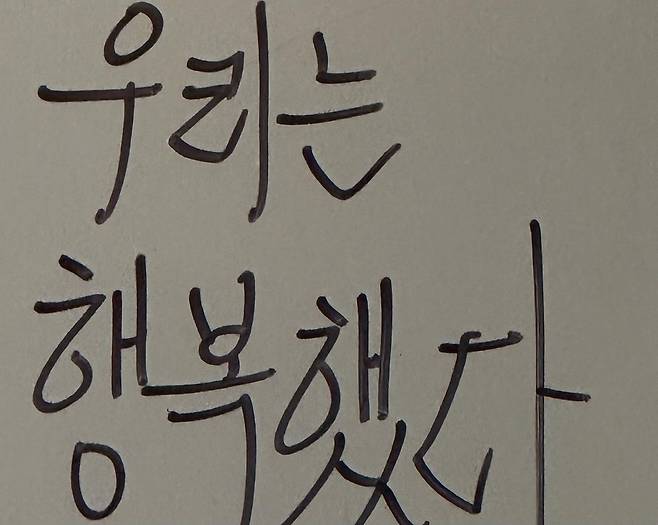 우리는
행복했다